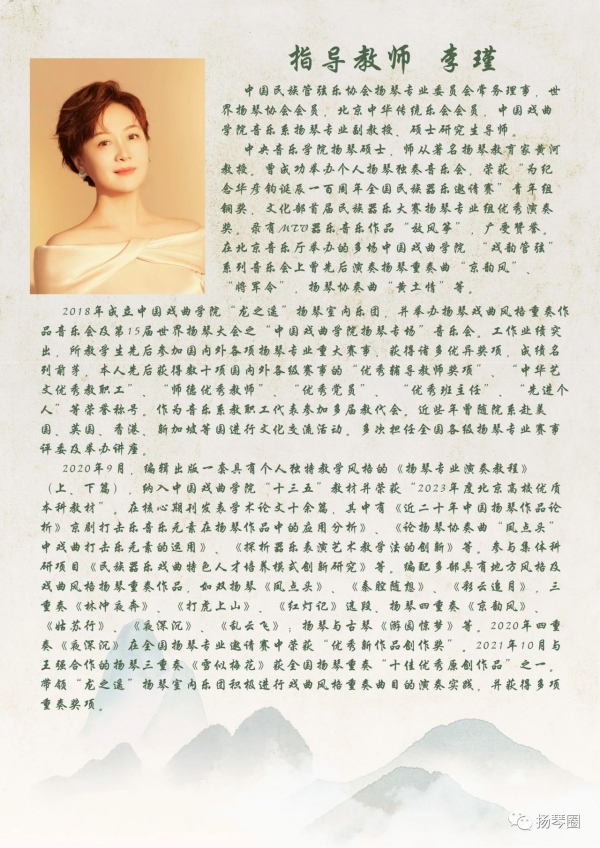 指导教师 李瑾
中国民族管弦乐协会扬琴专业委员会常务理事，世
界扬琴协会会员，北京中华传统乐会会员，中国戏曲
学院音乐系扬琴专业副教授、硕士研究生导师。
中央音乐学院扬琴硕士，师从著名扬琴教育家黄河
教授。曾成功举办个人扬琴独奏音乐会，荣获“为纪
念华彦钧诞辰一百周年全国民族器乐邀请赛”青年组
铜奖、文化部首届民族器乐大赛扬琴专业组优秀演奏
奖。录有MTV器乐音乐作品“放风筝”，广受赞誉。
在北京音乐厅举办的多场中国戏曲学院 “戏韵管弦”
系列音乐会上曾先后演奏扬琴重奏曲“京韵风”、
“将军令”，扬琴协奏曲“黄土情”等。
2018年成立中国戏曲学院“龙之遥”扬琴室内乐团，并举办扬琴戏曲风格重奏作
品音乐会及第15届世界扬琴大会之“中国戏曲学院扬琴专场”音乐会。工作业绩突
出，所教学生先后参加国内外各项扬琴专业重大赛事，获得诸多优异奖项，成绩名
列前茅，本人先后获得数十项国内外各级赛事的“优秀辅导教师奖项”、“中华艺
文优秀教职工”、“师德优秀教师”、“优秀党员”、“优秀班主任”、“先进个
人”等荣誉称号。作为音乐系教职工代表参加多届教代会。近些年曾随院系赴美
国、英国、香港、新加坡等国进行文化交流活动。多次担任全国各级扬琴专业赛事
评委及举办讲座。
2020年9月，编辑出版一套具有个人独特教学风格的《扬琴专业演奏教程》
（上、下篇），纳入中国戏曲学院“十三五”教材并荣获“2023年度北京高校优质
本科教材”。在核心期刊发表学术论文十余篇，其中有《近二十年中国扬琴作品论
析》京剧打击乐音乐元素在扬琴作品中的应用分析》、《论扬琴协奏曲“凤点头”
中戏曲打击乐元素的运用》、《探析器乐表演艺术教学法的创新》等。参与集体科
研项目《民族器乐戏曲特色人才培养模式创新研究》等。编配多部具有地方风格及
戏曲风格扬琴重奏作品，如双扬琴《凤点头》、《秦腔随想》、《彩云追月》，三
重奏《林冲夜奔》、《打虎上山》、《红灯记》选段，扬琴四重奏《京韵风》、
《姑苏行》、《夜深沉》、《乱云飞》；扬琴与古琴《游园惊梦》等。2020年四重
奏《夜深沉》在全国扬琴专业邀请赛中荣获“优秀新作品创作奖”。2021年10月与
王强合作的扬琴三重奏《雪似梅花》获全国扬琴重奏“十佳优秀原创作品”之一。
带领“龙之遥”扬琴室内乐团积极进行戏曲风格重奏曲目的演奏实践，并获得多项
重奏奖项。
扬琴圈